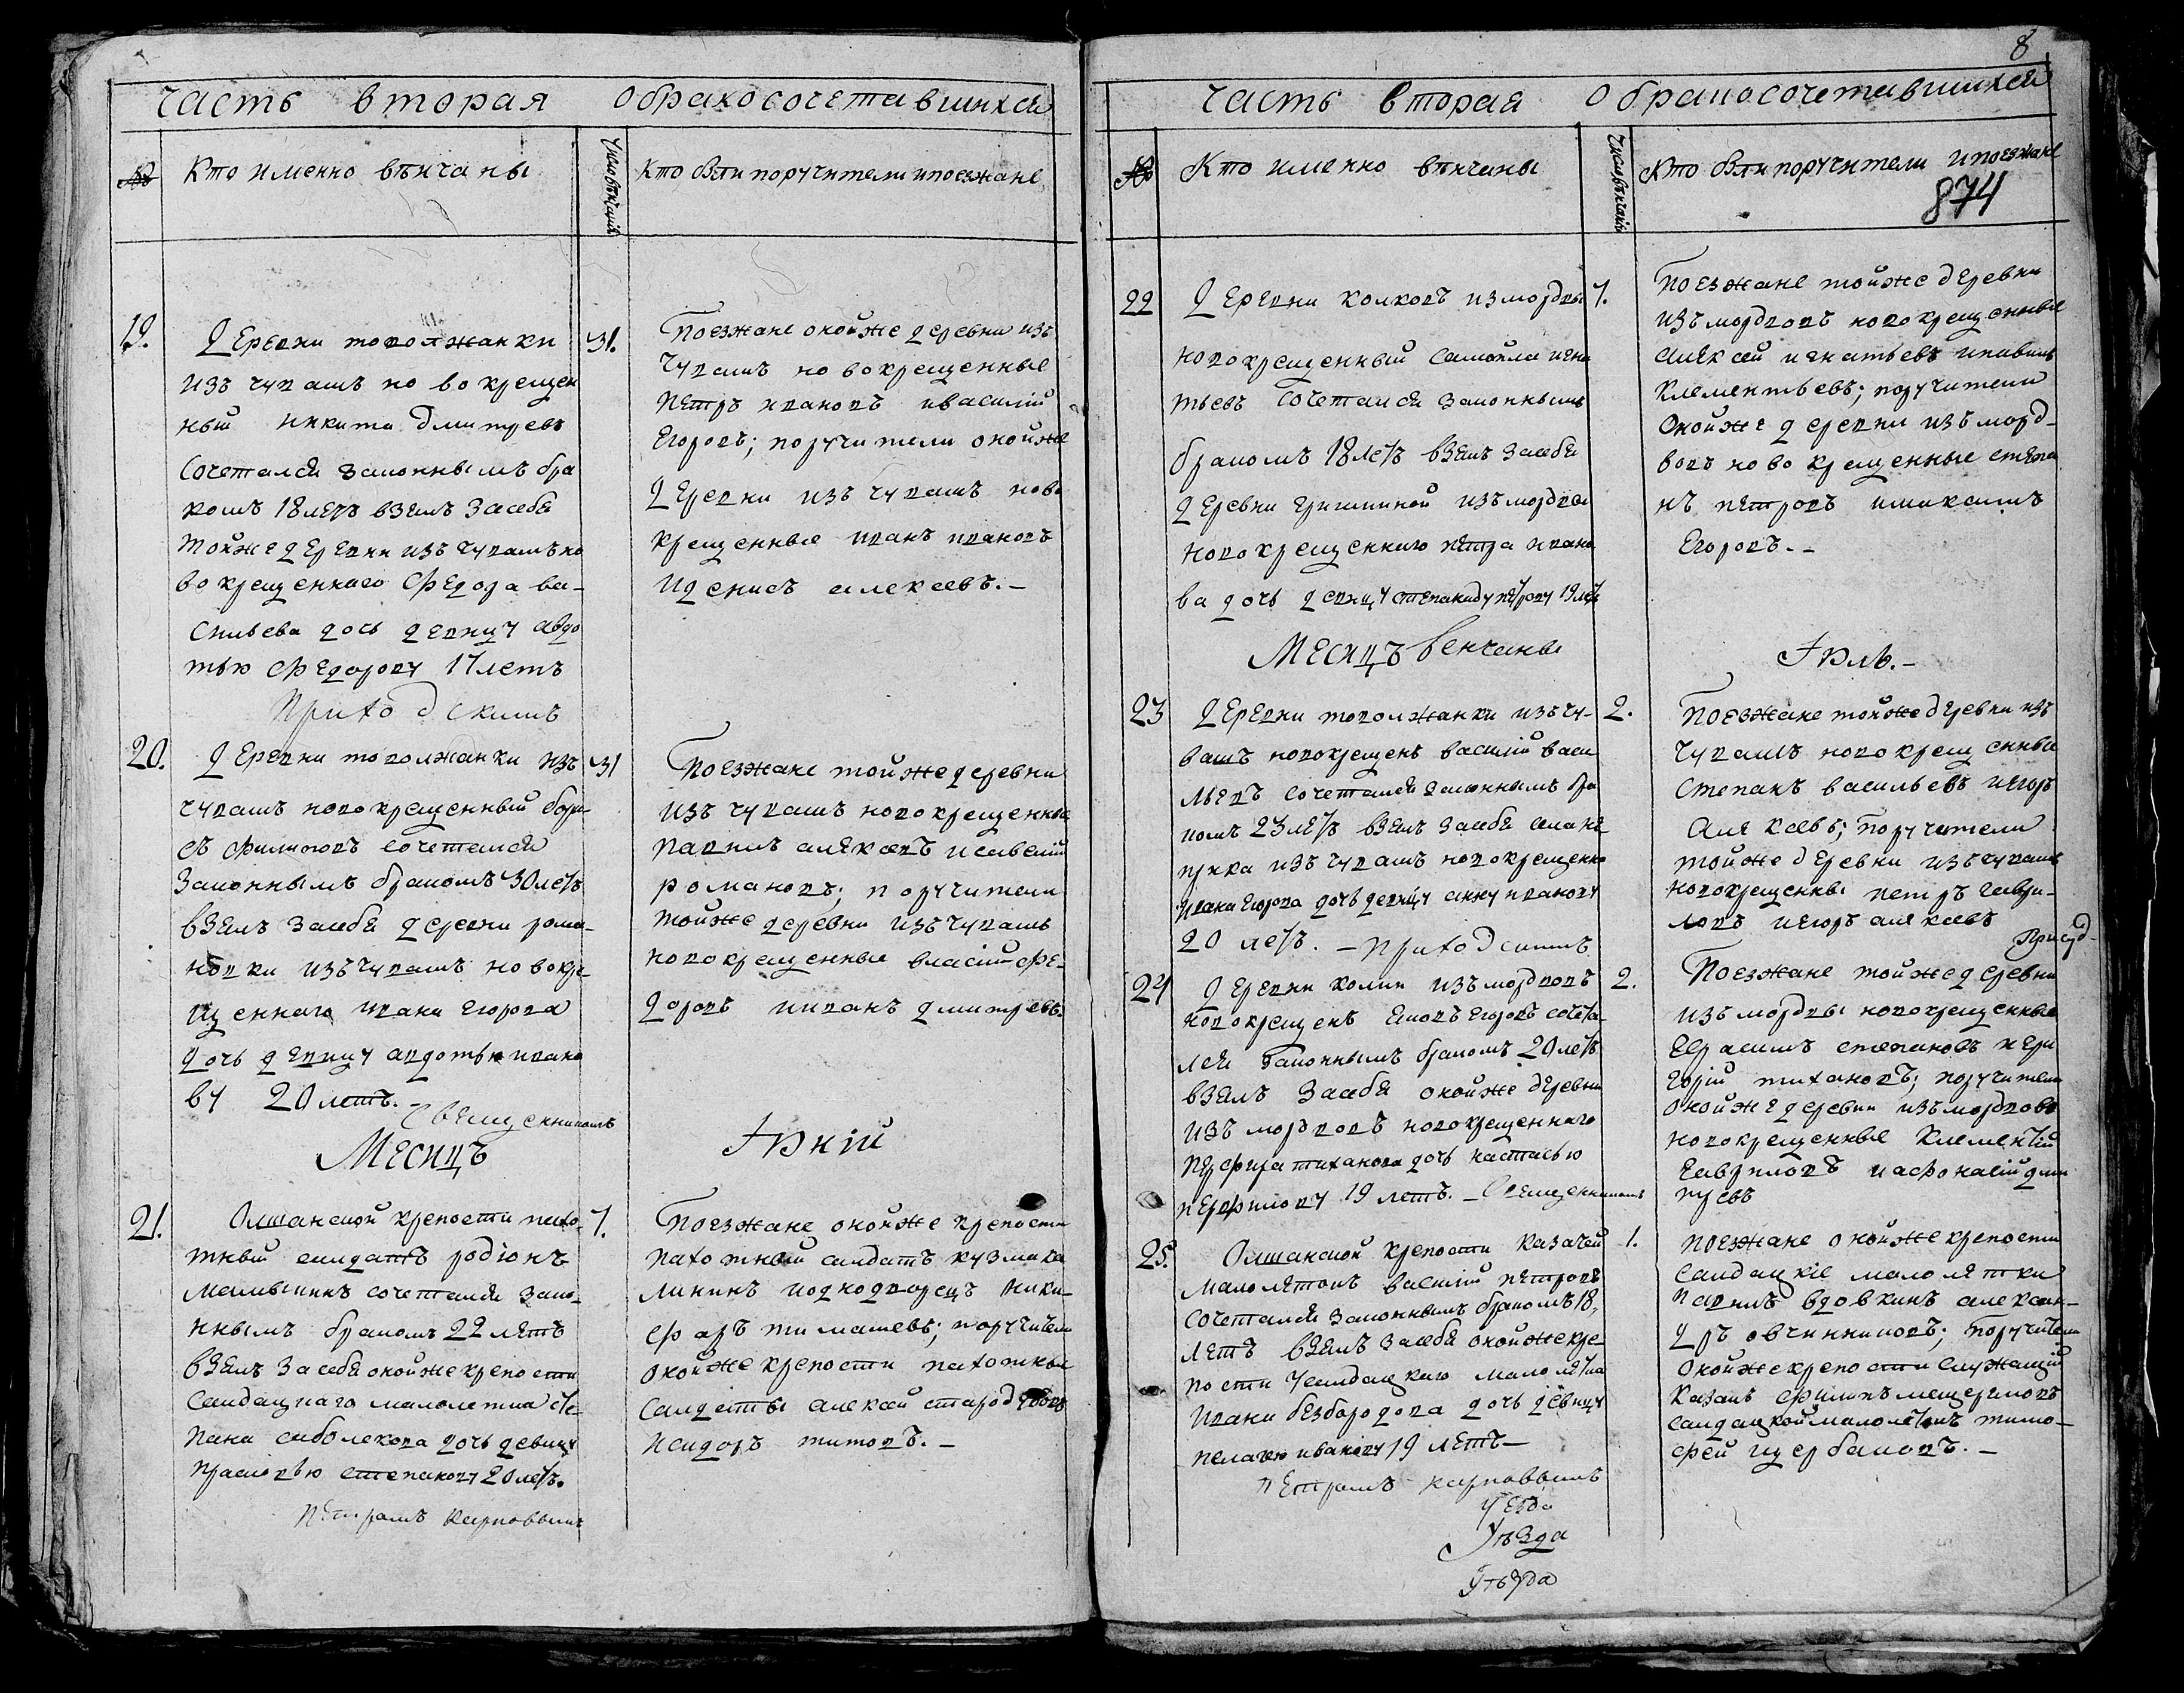 часть вторая обракосочетавшихся
№
Кто именно вѣнчаны
число вѣнчаній
Кто были поручители ипоезжане
19.
Деревни товолжанки
изъ чувашъ но во крещен
ный никита дмитревъ
сочетался законнымъ бра
комъ 18 летъ взялъ засебя
тойже деревни изъ чувашъ но
во крещеннаго Федора ва-
сильева дочь девицу авдо
тью Федорову 17 летъ
31.
Поезжане онойже деревни изъ
чувашъ но вокрещенные
Петръ ивановъ ивасилій
Егоровъ; поручители онойже
Деревни изъ чувашъ ново
крещенные иванъ ивановъ
Иденисъ алексеевъ.-
20.
Деревни товолжанки изъ
чувашъ новокрещенный бори-
съ филиповъ сочетался
Законнымъ бракомъ 30 летъ
взялъ засебя деревни рома-
новки изъ чувашъ новокре-
щеннаго ивана егорова
Дочь девицу авдотью ивано
ву 20 летъ.
Священникомъ
31
Поезжане тойже деревни
изъ чувашъ новокрещенные
Павилъ алексеевъ исавелій
романовъ; поручители
тойже деревни изъ чувашъ
новокрещенные власій Фе-
доровъ ииванъ дмитревъ.
Месицъ Іюній
21.
Олшанской крепости пахо-
тный салдатъ родіонъ
малышинъ сочетался зако-
ннымъ бракомъ 22 летъ
взялъ засебя онойже крепости
Салдацкаго малолетка сте-
пана соболекова дочь девицу
Прасковью степанову 20 летъ.
Петромъ карповымъ
7.
Поезжане онойже крепости
пахотный салдатъ кузма ка
лининъ иоднодворецъ ники-
фаръ тимашевъ; поручители
онойже крепости пахотные
Салдаты алексей стародубовъ
Исидоръ титовъ.-
8
часть вторая обракосочетавшихся
№
Кто именно вѣнчаны
число вѣнчаній
Кто были поручители ипоезжане
874
22
Деревни колковъ измордвы
новокрещенный самойла игна
тьевъ сочетался законнымъ
бракомъ 18 летъ взялъ засебя
деревни гришиной измордвы
новокрещеннаго петра ивано
ва дочь девицу степаниду петрову 19 летъ
7.
Поезжане тойже деревни
изъ мордвовъ новокрещенные
алексей игнатьевъ ипавилъ
Клементьевъ; поручители
Онойже деревни изъ морд-
вовъ ново крещенные степа
нъ петровъ имаксимъ
Егоровъ.-
Месицъ венчаны Іюль.-
23
Деревни товолжанки изъ чу-
вашъ новокрещенъ василій васи
льевъ сочетался законнымъ бра
комъ 23 летъ взялъ засебя
изъ чувашъ новокрещенно
ивана егорова дочь девицу анну иванову
20 летъ.-
2.
Поезжане тойже деревни изъ
чувашъ новокрещенные
степанъ васильевъ иегоръ
алексеевъ; поручители
тойже деревни изъ чувашъ
новокрещенны петръ гаври-
ловъ иегоръ алексеевъ
24
Деревни колки изъ мордвовъ
новокрещенъ егоровъ сочета-
лся законнымъ бракомъ 20 летъ
взялъ засебя онойже деревни
изъ мордвовъ новокрещеннаго
перфира тиханова дочь настасью
перфилову 19 летъ.- Священникомъ
2.
Поезжане тойже деревни
изъ мордвы новокрещенные
герасимъ степановъ игри
горій тихановъ; поручители
онойже деревни изъ мордвовъ
новокрещенные клементій
гавриловъ иафонасій дми
тревъ
25.
Олшанской крепости казачей
малолетокъ василій петровъ
сочетался законнымъ бракомъ 18,
летъ взялъ засебя онойже кре-
пости салдацкаго малолетка
ивана безбородова дочь девицу
пелагею иванову 19 летъ-
Петромъ карповымъ
1.
поезжане онойже крепости
салдацкіе малолетки
павилъ вдовкинъ алексан-
дръ овчинниковъ; поручители
онойже крепости служащій
казакъ филипъ мещеряковъ
салдацкой малолетокъ тимо-
фей щербаковъ.-
Уезда
Уѣзда
Уѣзда